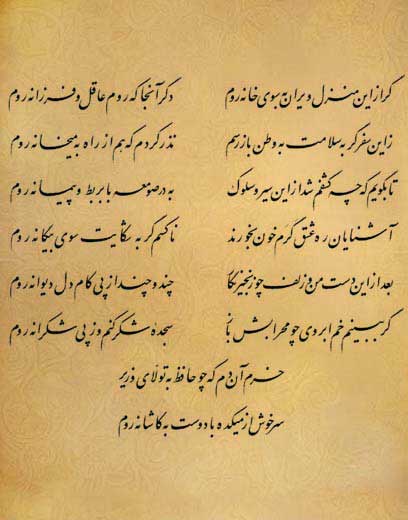 گر از این منزل ویران به سوی خانه روم دگر آنجا که روم عاقل و فرزانه روم
زاین سفر گر به سلامت به وطن باز رسم نذر کردم که هم از راه به میخانه روم
تا بگویم که چه کشفم شد از این سیر و سلوک به در صومعه با بربط و پیمانه روم
آشنایان ره عشق گرم خون بخورند ناکسم گر به شکایت سوی بیگانه روم
بعد از این دست من و زلف چو زنجیر نگار چند و چند از پی کام دل دیوانه روم
گر ببینم خم ابروی چو محرابش باز سجده شکر کنم وز پی شکرانه روم
خرم آن دم که چو حافظ به تولای وزیر
سرخوش از میکده با دوست به کاشانه روم